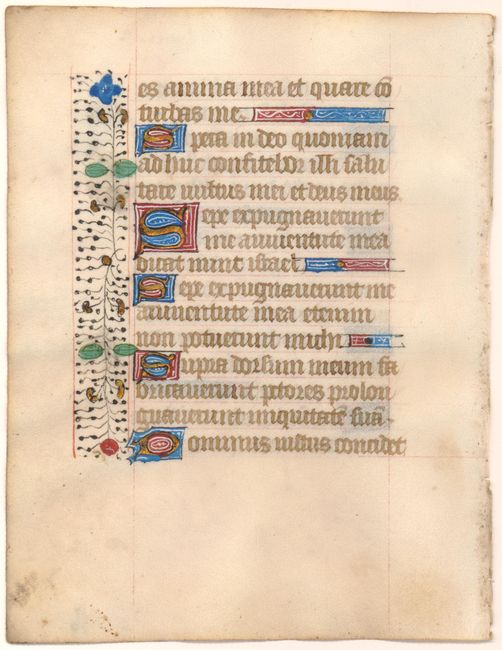 es anima mea et quare cō
turbas me.
Spera in deo quoniam
adhuc confitebor illi salu
tare vultus mei et deus meus.
Sepe expugnaverunt
me a iuventute mea
dicat nunc israel
Sepe expugnaverunt me
a iuventute mea etenim
non potuerunt michi
Supra dorsum meum fa
bricaverunt pctores prolon
gaverunt iniquitatē suā
Dominus iustus concidet